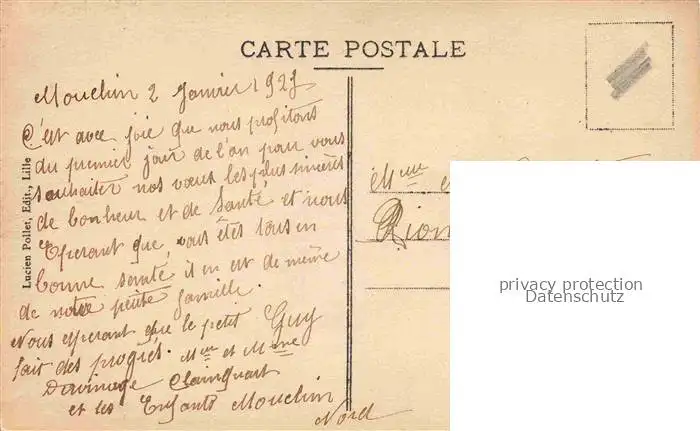 CARTE POSTALE
Mouchin 2 Janvier 1927
C'est avec joie que nous profitons
du premier jour de l'an pour vous
souhaiter nos vœux les plus sincères
de bonheur et de Santé et nous
Esperant que vous êtes tous en
bonne santé il en est de même
de notre petite famille.
Nous esperant que le petit Guy
fait des progrés. Mr et Mme
Clainquart
et les Enfants Mouchin
Nord
Lucien Pollet, Edit., Lille
Mme
privacy protection
Datenschutz